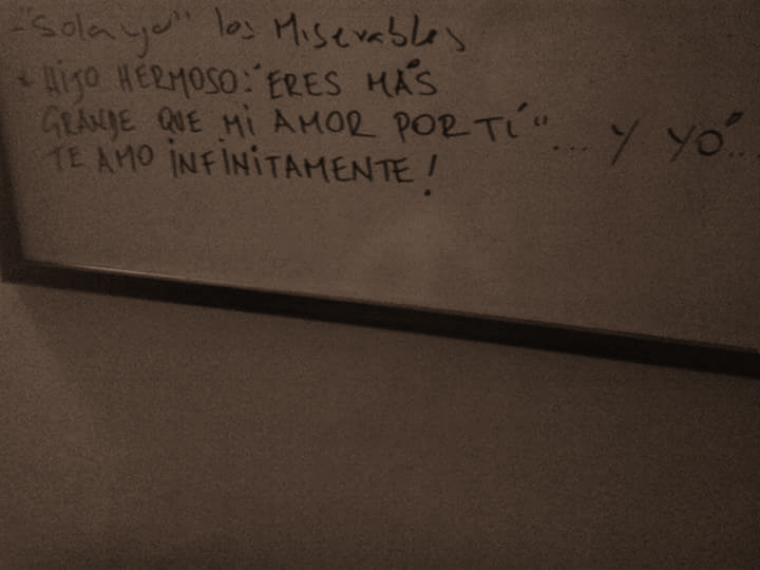 -"Sola yo" los Miserables
* HIJO HERMOSO: "ERES MÁS
GRANDE QUE MI AMOR POR TÍ"... Y YÓ...
TE AMO INFINITAMENTE!